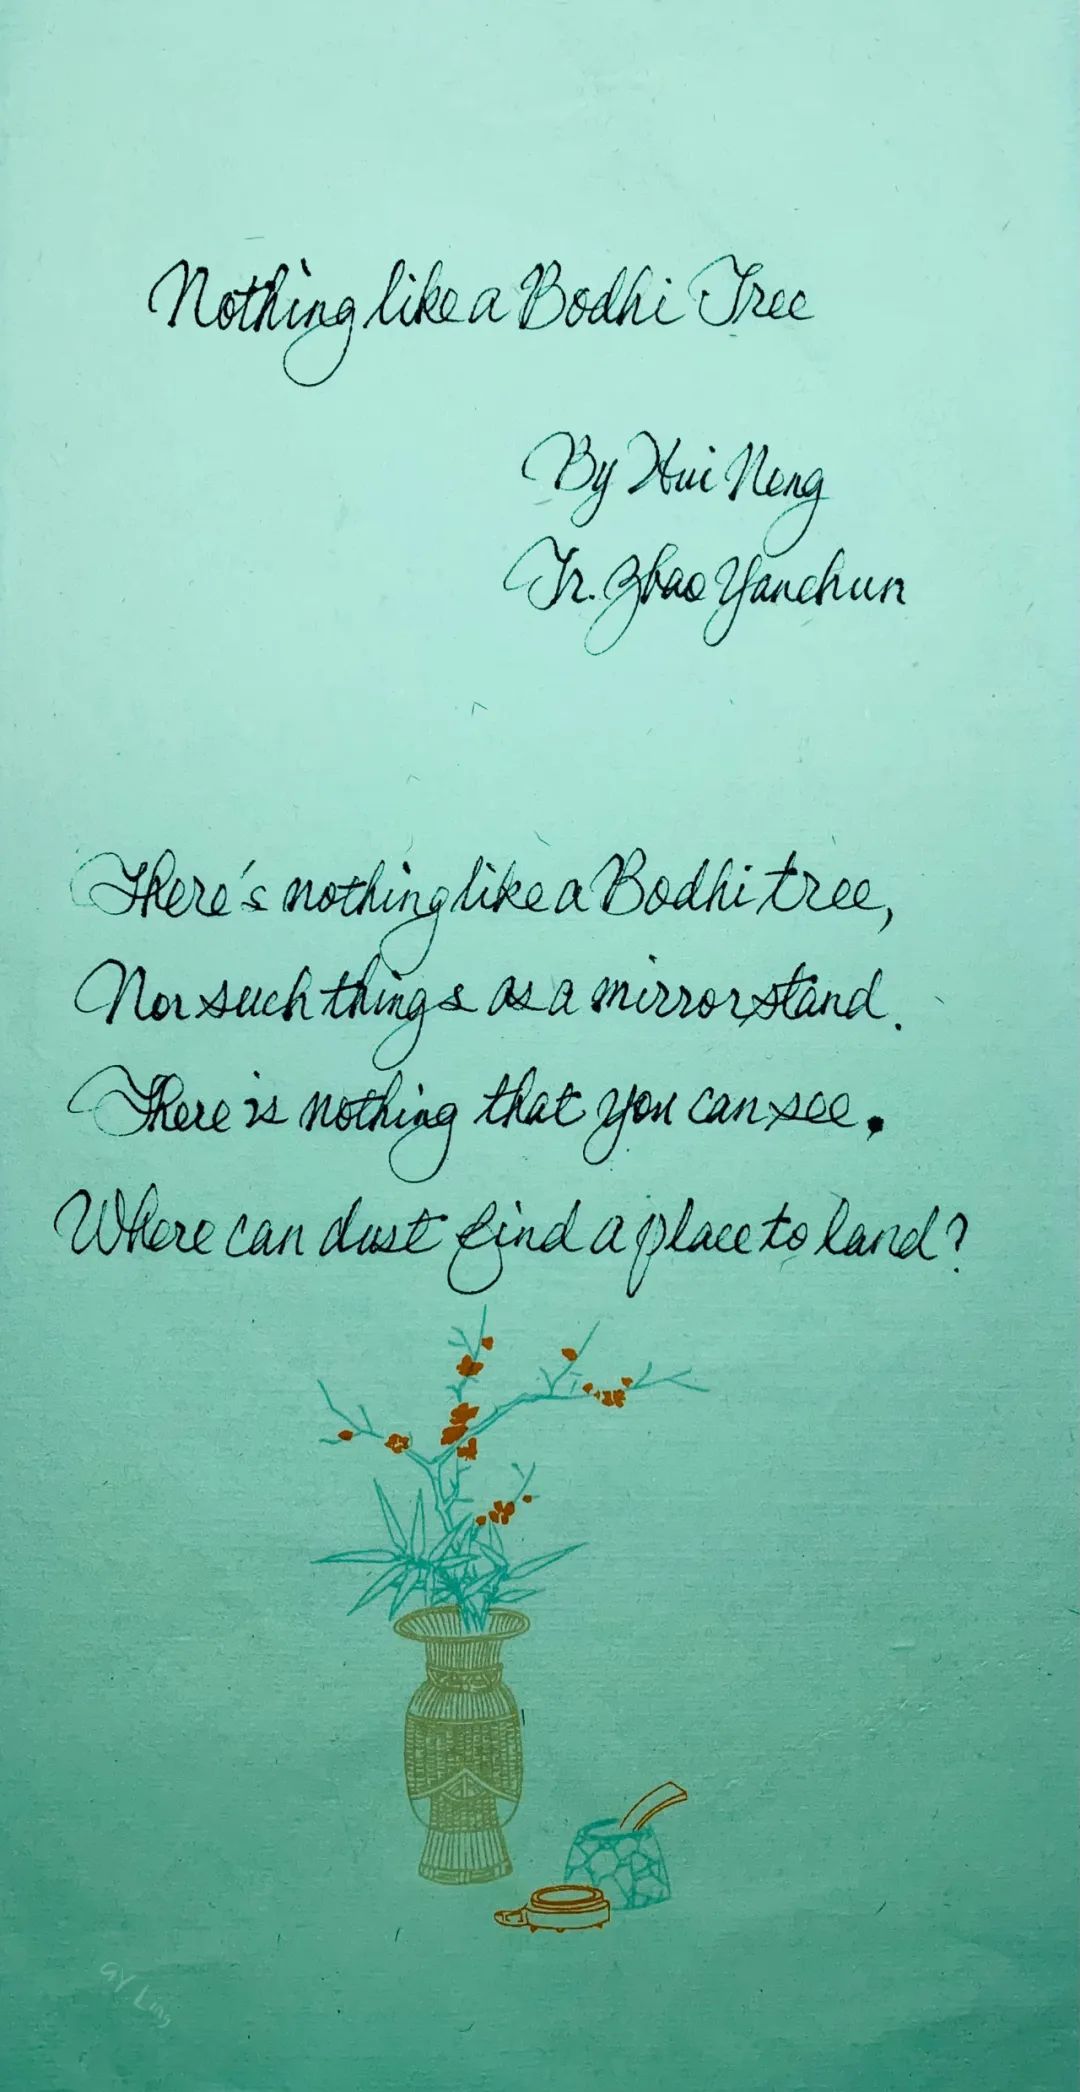 Nothing like a Bodhi Tree
By Hui Neng
Tr. Zhao Yanchun
There's nothing like a Bodhi tree,
Nor such things as a mirror stand.
There is nothing that you can see.
Where can dust find a place to land?
GY Ling